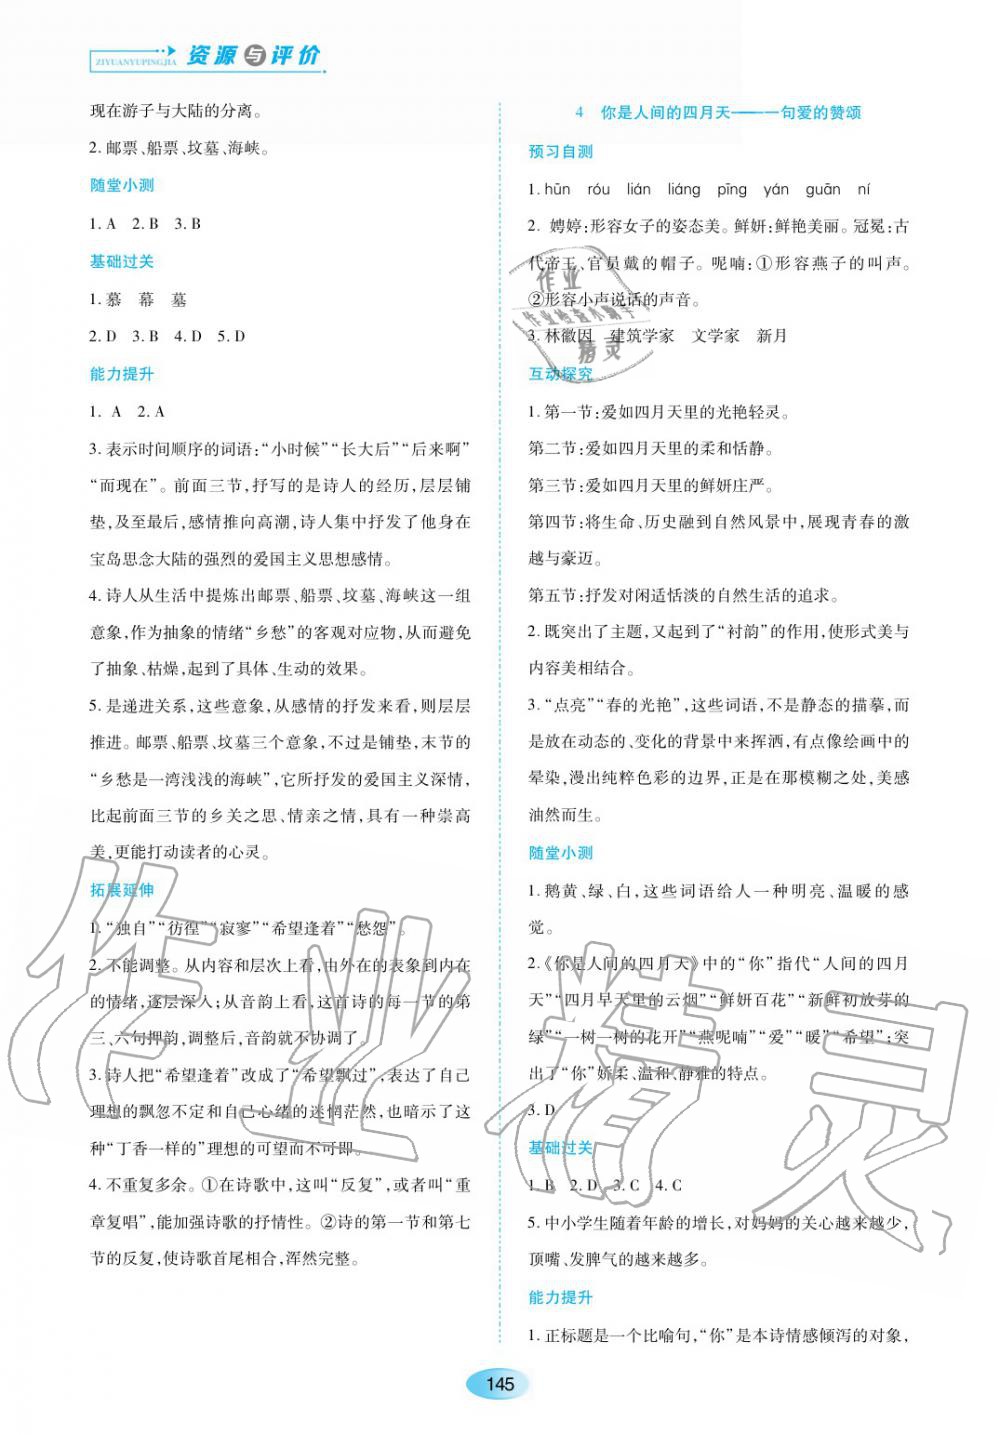 ZIYUANYUPINGJIA 资源与评价
现在游子与大陆的分离。
2. 邮票、船票、坟墓、海峡。
随堂小测
1. A 2. B 3. B
基础过关
1. 慕 幕 墓
2. D 3. B 4. D 5. D
能力提升
1. A 2. A
3. 表示时间顺序的词语:“小时候”“长大后”“后来啊”
“而现在”。前面三节,抒写的是诗人的经历,层层铺
垫,及至最后,感情推向高潮,诗人集中抒发了他身在
宝岛思念大陆的强烈的爱国主义思想感情。
4. 诗人从生活中提炼出邮票、船票、坟墓、海峡这一组
意象,作为抽象的情绪“乡愁”的客观对应物,从而避免
了抽象、枯燥,起到了具体、生动的效果。
5. 是递进关系,这些意象,从感情的抒发来看,则层层
推进。邮票、船票、坟墓三个意象,不过是铺垫,末节的
“乡愁是一湾浅浅的海峡”,它所抒发的爱国主义深情,
比起前面三节的乡关之思、情亲之情,具有一种崇高
美,更能打动读者的心灵。
拓展延伸
1. “独自”“彷徨”“寂寥”“希望逢着”“愁怨”。
2. 不能调整。从内容和层次上看,由外在的表象到内在
的情绪,逐层深入;从音韵上看,这首诗的每一节的第
三、六句押韵,调整后,音韵就不协调了。
3. 诗人把“希望逢着”改成了“希望飘过”,表达了自己
理想的飘忽不定和自己心绪的迷惘茫然,也暗示了这
种“丁香一样的”理想的可望而不可即。
4. 不重复多余。①在诗歌中,这叫“反复”,或者叫“重
章复唱”,能加强诗歌的抒情性。②诗的第一节和第七
节的反复,使诗歌首尾相合,浑然完整。
4 你是人间的四月天——一句爱的赞颂
预习自测
1. hūn róu lián liáng pīng yán guān ní
2. 娉婷:形容女子的姿态美。鲜妍:鲜艳美丽。冠冕:古
代帝王、官员戴的帽子。呢喃:①形容燕子的叫声。
②形容小声说话的声音。
3. 林徽因 建筑学家 文学家 新月
互动探究
1. 第一节:爱如四月天里的光艳轻灵。
第二节:爱如四月天里的柔和恬静。
第三节:爱如四月天里的鲜妍庄严。
第四节:将生命、历史融到自然风景中,展现青春的激
越与豪迈。
第五节:抒发对闲适恬淡的自然生活的追求。
2. 既突出了主题,又起到了“衬韵”的作用,使形式美与
内容美相结合。
3. “点亮”“春的光艳”,这些词语,不是静态的描摹,而
是放在动态的、变化的背景中来挥洒,有点像绘画中的
晕染,漫出纯粹色彩的边界,正是在那模糊之处,美感
油然而生。
随堂小测
1. 鹅黄、绿、白,这些词语给人一种明亮、温暖的感
觉。
2.《你是人间的四月天》中的“你”指代“人间的四月
天”“四月早天里的云烟”“鲜妍百花”“新鲜初放芽的
绿”“一树一树的花开”“燕呢喃”“爱”“暖”“希望”;突
出了“你”娇柔、温和、静雅的特点。
3. D
基础过关
1. B 2. D 3. C 4. C
5. 中小学生随着年龄的增长,对妈妈的关心越来越少,
顶嘴、发脾气的越来越多。
能力提升
1. 正标题是一个比喻句,“你”是本诗情感倾泻的对象,
145
作业精灵
作业
作业检查小助手
精灵